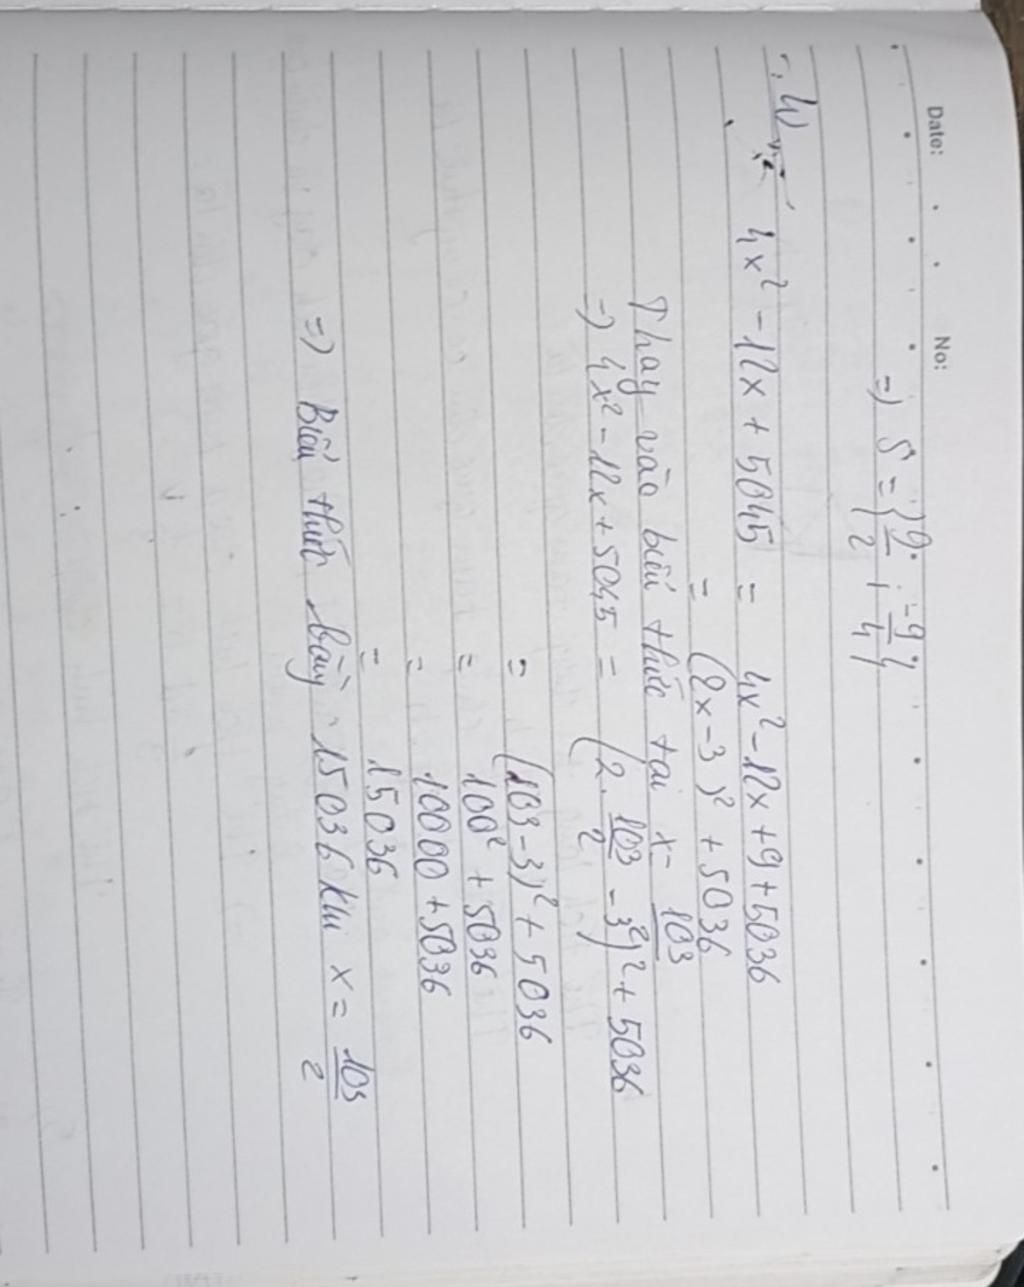 Date: No:
=) S = { 9/2 ; -9/4 }
4x² - 12x + 5045 = 4x² - 12x + 9 + 5036
= (2x - 3)² + 5036
Thay vào biểu thức tại x = 103
=) 4x² - 12x + 5045 = (2. 103/2 - 3²)² + 5036
= (103 - 3)² + 5036
= 100² + 5036
= 10000 + 5036
= 15036
=) Biểu thức bằng 15036 khi x = 103/2